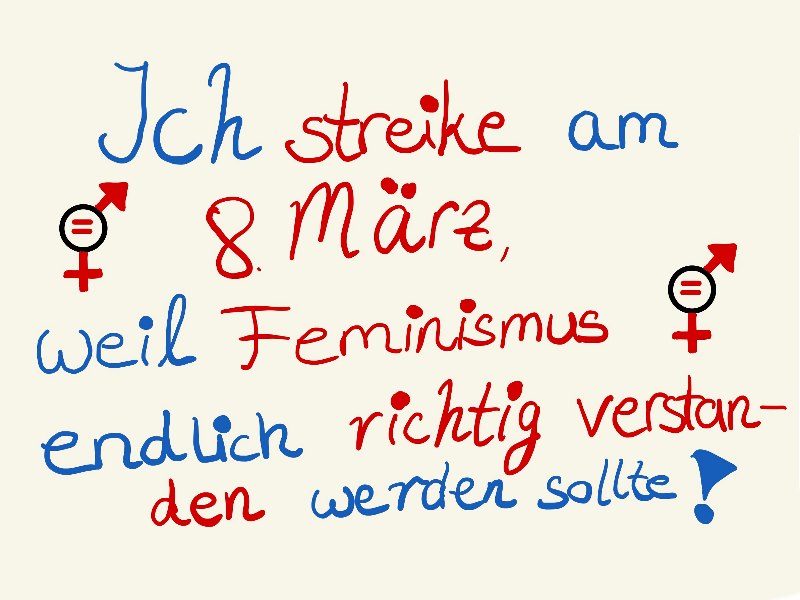 Ich streike am
8. März,
weil Feminismus
endlich richtig verstan-
den werden sollte!